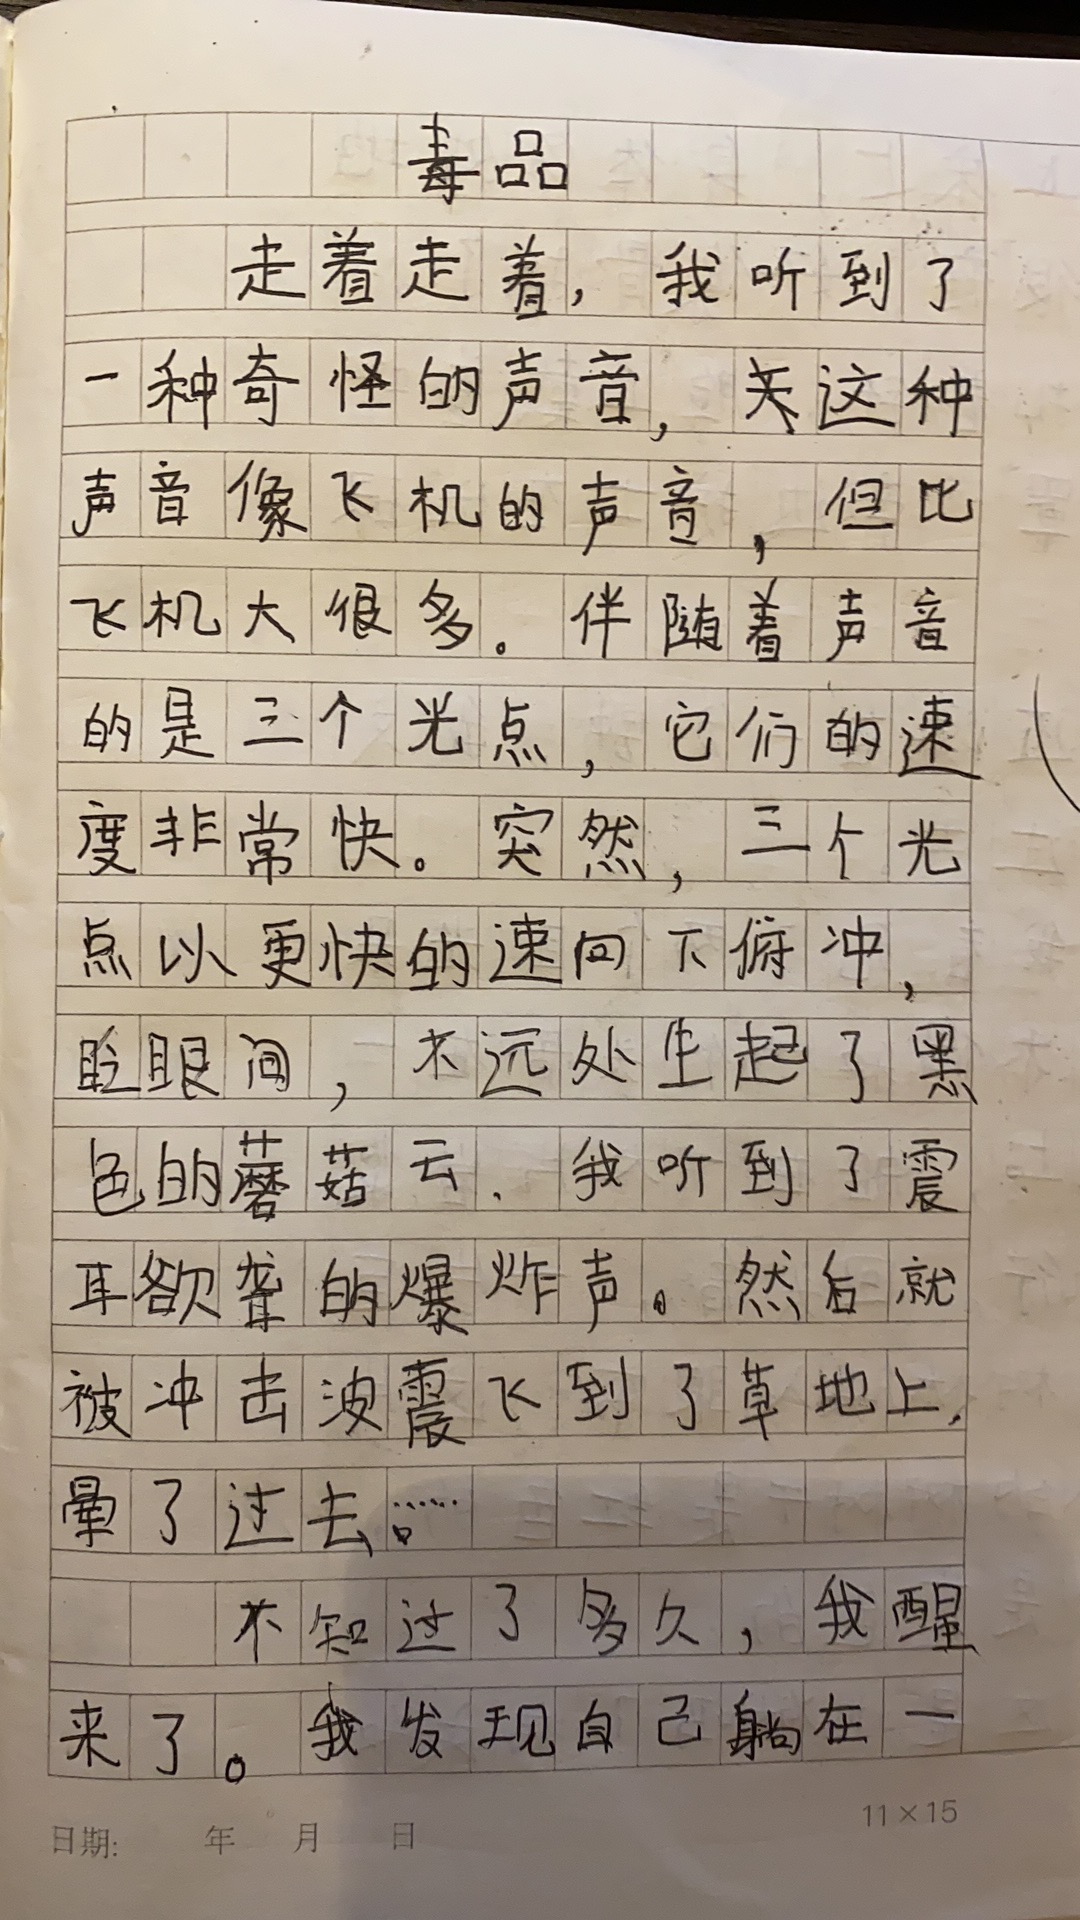 毒品
走着走着，我听到了
一种奇怪的声音，关这种
声音像飞机的声音，但比
飞机大很多。伴随着声音
的是三个光点，它们的速
度非常快。突然，三个光
点以更快的速向下俯冲，
眨眼间，不远处生起了黑
色的蘑菇云.我听到了震
耳欲聋的爆炸声。然后就
被冲击波震飞到了草地上.
晕了过去。……
不知过了多久，我醒
来了。我发现自己躺在一
日期: 年 月 日
11×15